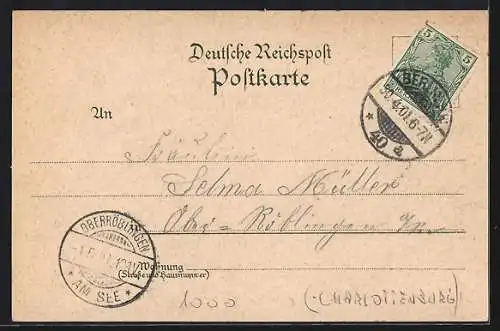 Deutsche Reichspost
Postkarte
5 5
BERLIN
30.4.01.6-7N
* 40 a *
An
Fräulein
Selma Müller
Ober-Röblingen
OBERRÖBLINGEN
AM SEE
Wohnung
(Straße und Hausnummer)
1000 (-CHARLOTTENBURG)